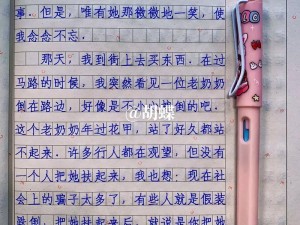 事。但是，唯有她那微微地一笑，使
我念念不忘。
那天，我到街上去买东西。在过
马路的时候，我突然看见一位老奶奶
倒在路边，好像是不小心摔倒的吧。
这个老奶奶年过花甲，站了好久都站
不起来。许多行人都在观望，但没有
一个人把她扶起来，我也想：现在社
会上的骗子太多了，有些人就是假装
跌倒，把她扶起来后，就说是你把她
@胡蝶